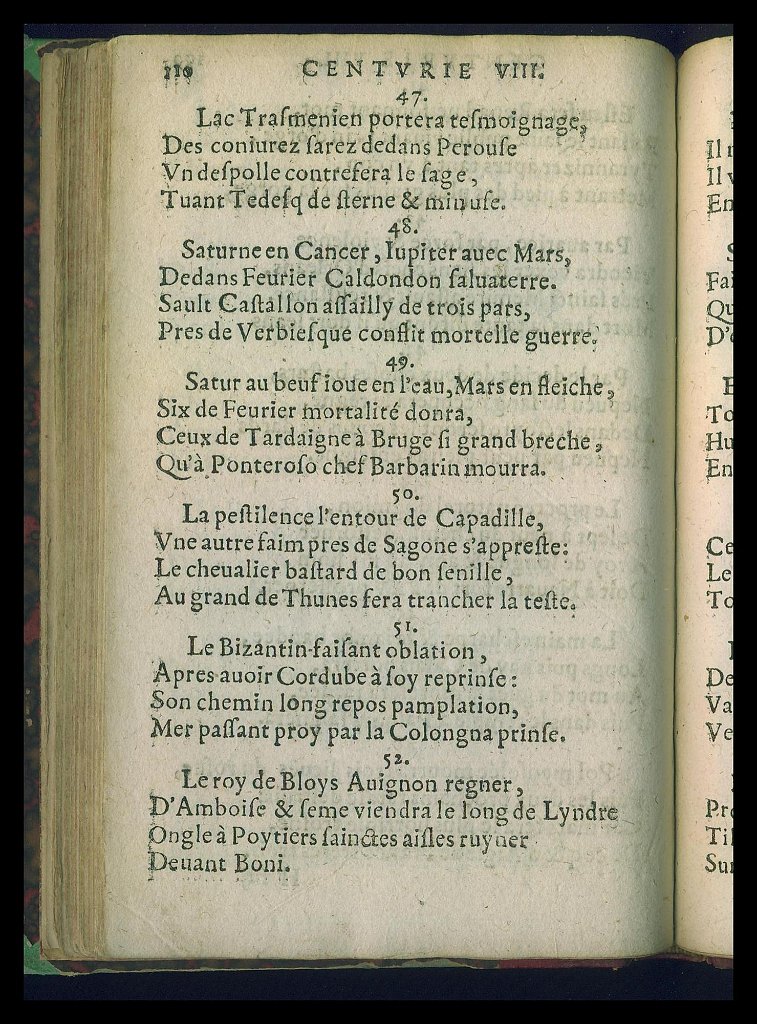 110 CENTVRIE VIII.
47.
Lac Traſmenien portera teſmoignage,
Des coniurez ſarez dedans Perouſe
Vn deſpolle contrefera le ſage,
Tuant Tedeſq de ſterne & minuſe.
48.
Saturne en Cancer, Iupiter auec Mars,
Dedans Feurier Caldondon ſaluaterre.
Sault Caſtallon aſſailly de trois pars,
Pres de Verbieſque conflit mortelle guerre.
49.
Satur au beuf ioue en l'eau, Mars en fleiche,
Six de Feurier mortalité donra,
Ceux de Tardaigne à Bruge ſi grand breche,
Qu'à Ponteroſo chef Barbarin mourra.
50.
La peſtilence l'entour de Capadille,
Vne autre faim pres de Sagone s'appreſte:
Le cheualier baſtard de bon ſenille,
Au grand de Thunes fera trancher la teſte.
51.
Le Bizantin faiſant oblation,
Apres auoir Cordube à ſoy reprinſe:
Son chemin lõg repos pamplation,
Mer paſſant proy par la Colongna prinſe.
52.
Le roy de Bloys Auignon regner,
D'Amboiſe & ſeme viendra le long de Lyndre
Ongle à Poytiers ſainctes aiſles ruyner
Deuant Boni.
Il
Il v
En
Fai
Qu
D'
To
Hu
En
Ce
Le
To
De
Va
Ve
Pr
Ti
Su